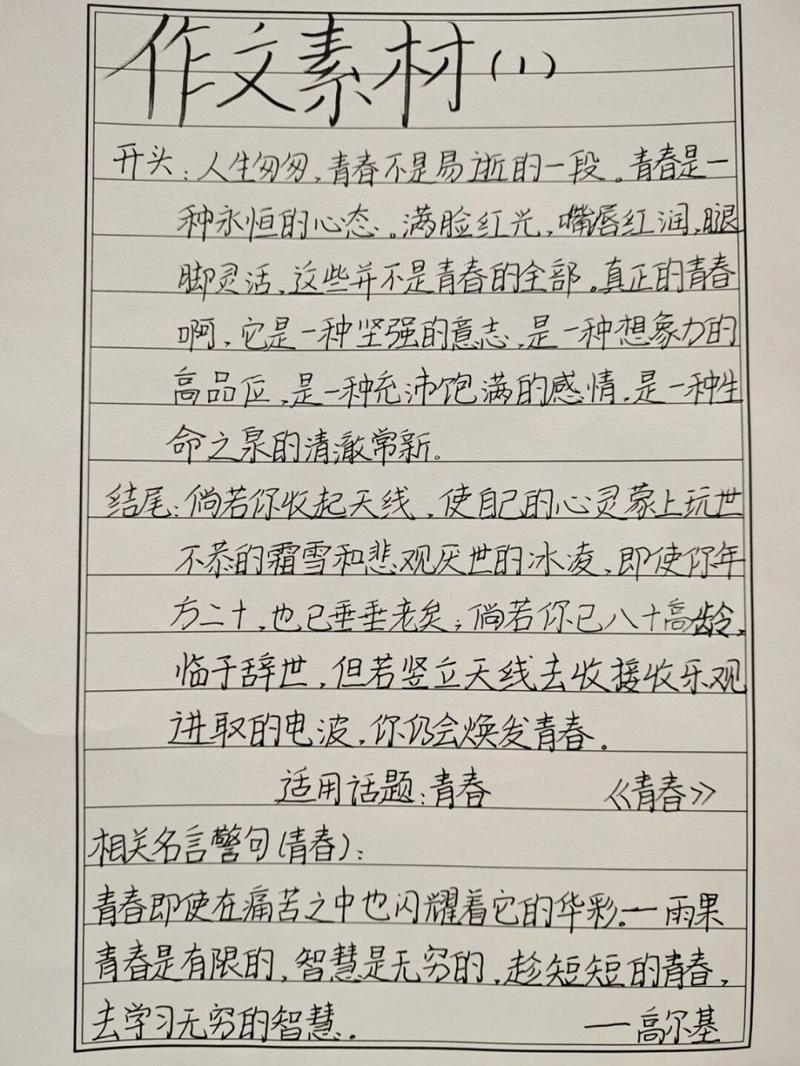 作文素材(1)
开头：人生匆匆，青春不是易逝的一段。青春是一
种永恒的心态。满脸红光，嘴唇红润，腿
脚灵活，这些并不是青春的全部。真正的青春
啊，它是一种坚强的意志，是一种想象力的
高品位，是一种充沛饱满的感情，是一种生
命之泉的清澈常新。
结尾：倘若你收起天线，使自己的心灵蒙上玩世
不恭的霜雪和悲观厌世的冰凌，即使你年
方二十，也已垂垂老矣；倘若你已八十高龄，
临于辞世，但若竖立天线去收接收乐观
进取的电波，你仍会焕发青春。
适用话题：青春 《青春》
相关名言警句(青春)：
青春即使在痛苦之中也闪耀着它的华彩。—雨果
青春是有限的，智慧是无穷的，趁短短的青春，
去学习无穷的智慧。 ——高尔基